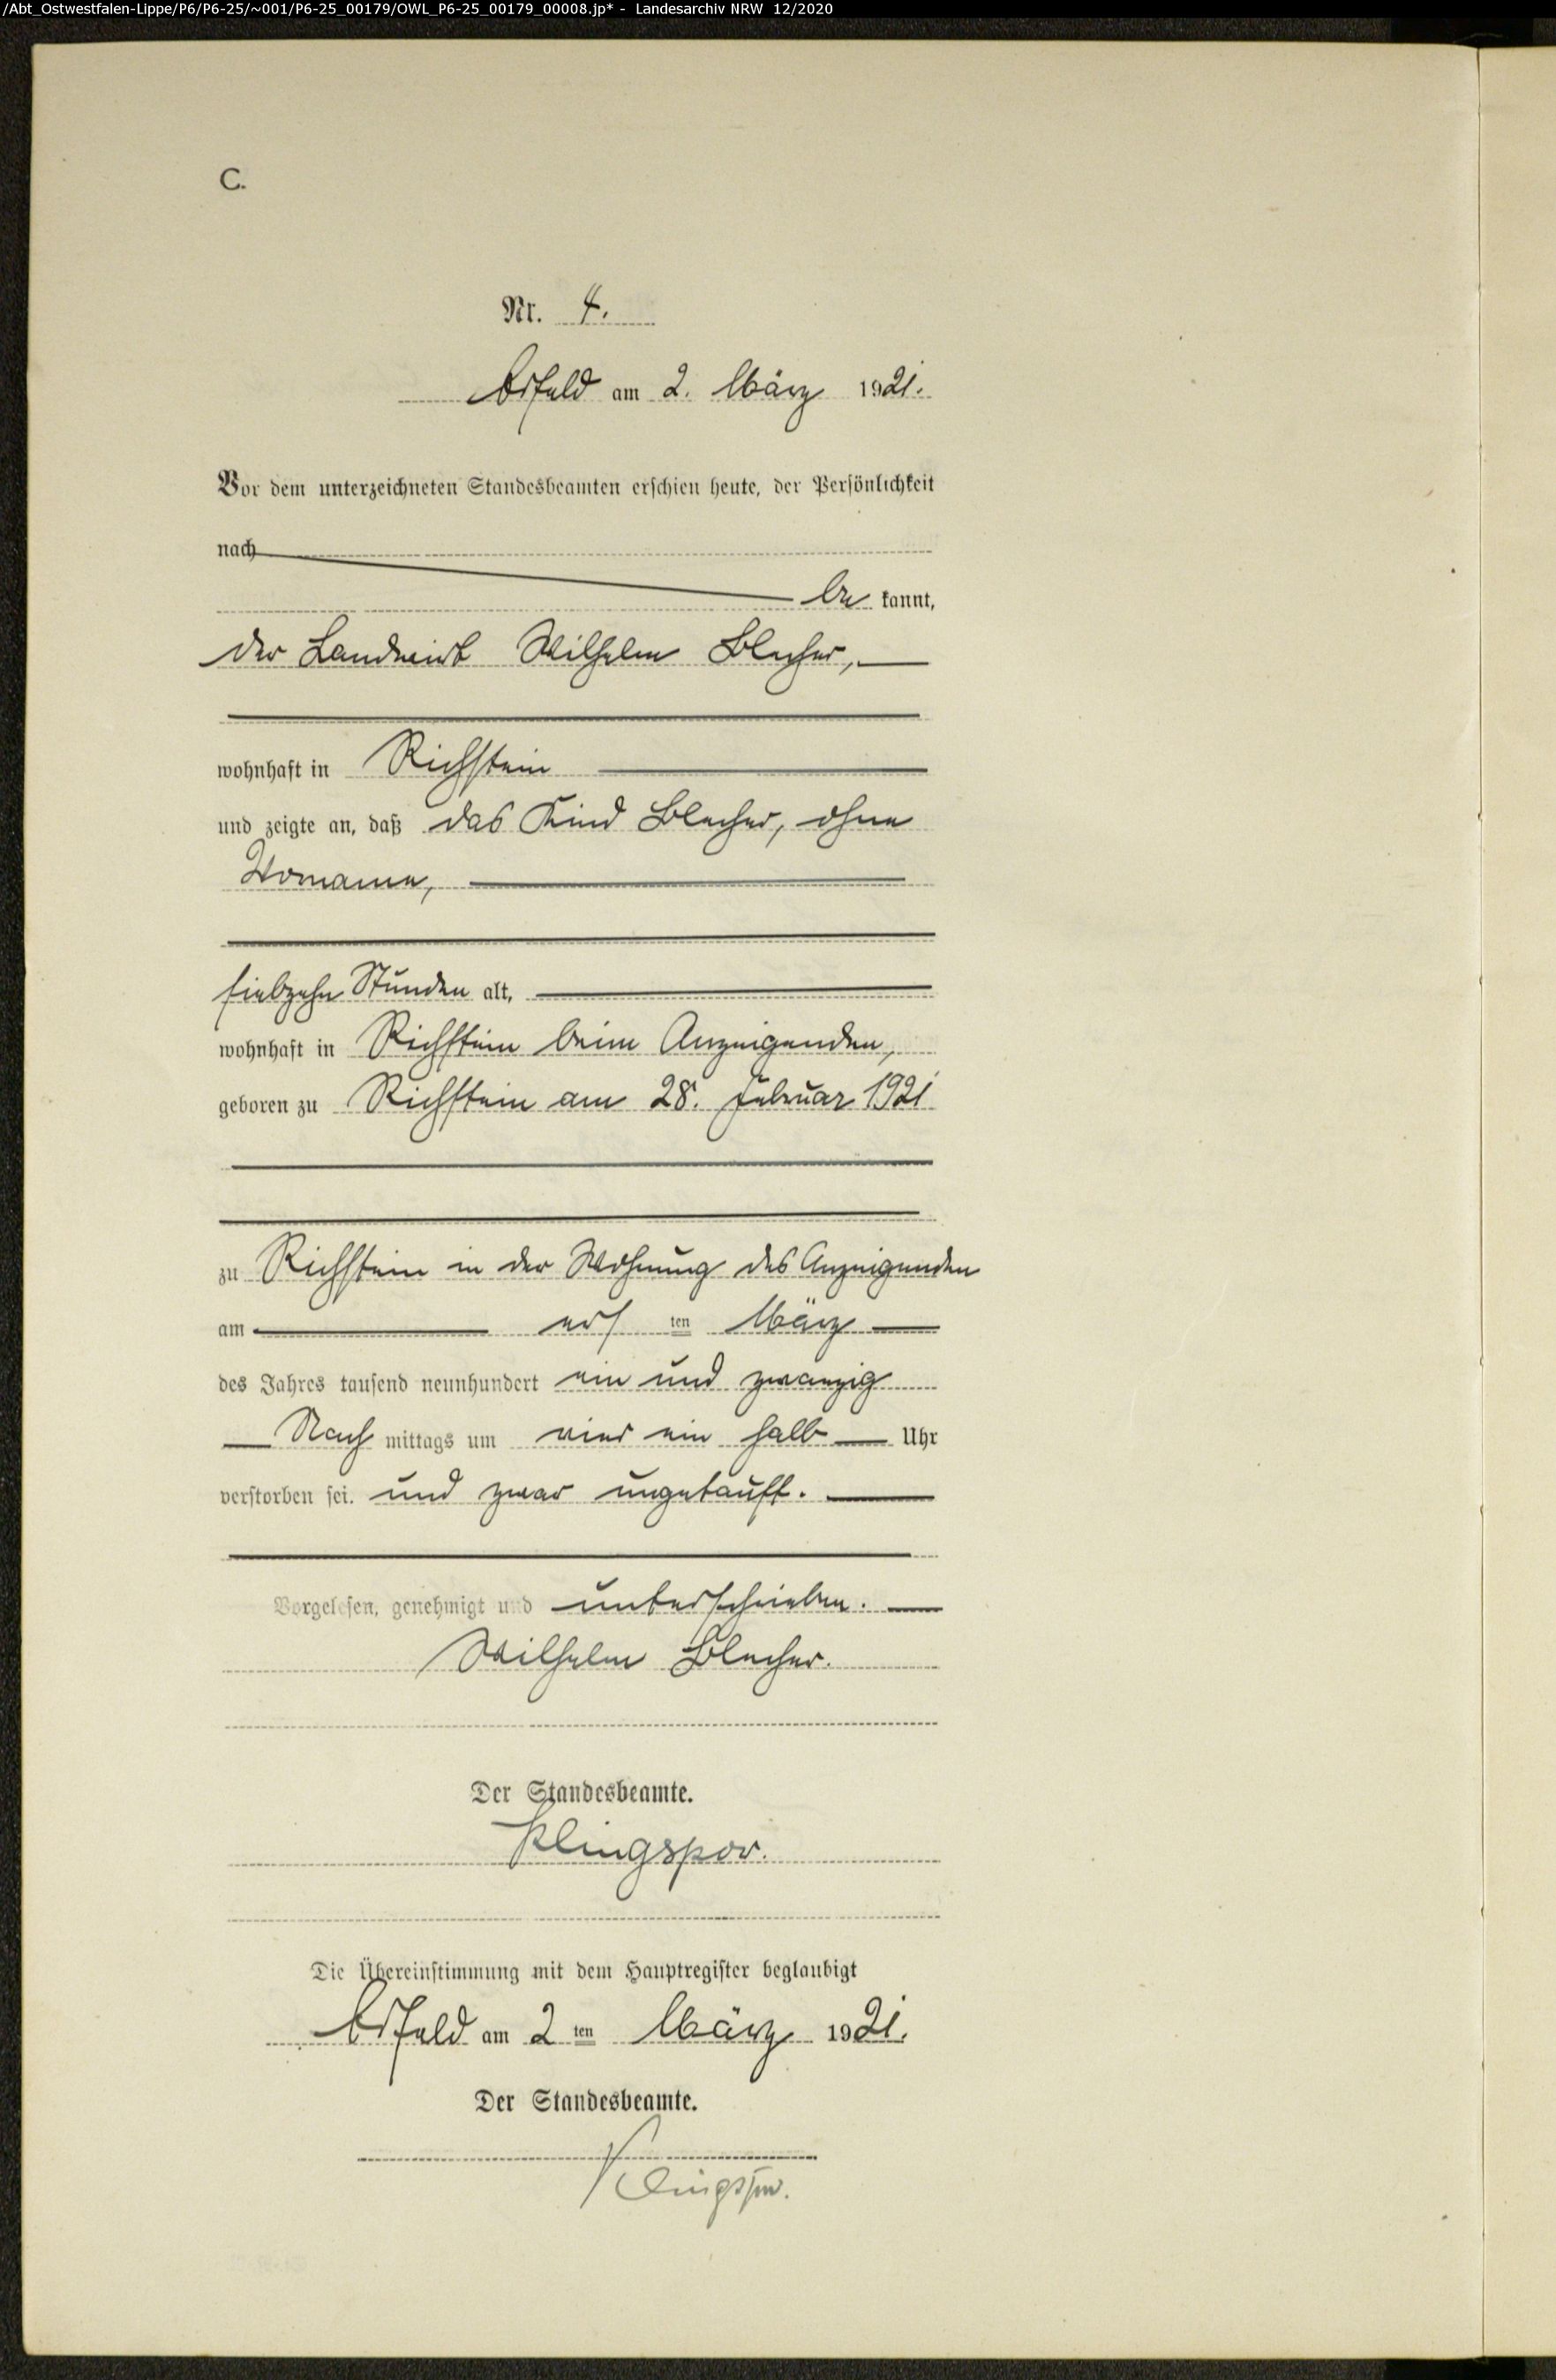 /Abt_Ostwestfalen-Lippe/P6/P6-25/~001/P6-25_00179/OWL_P6-25_00179_00008.jp* - Landesarchiv NRW 12/2020
C.
Nr. 4.
Arfeld am 2. März 1921.
Vor dem unterzeichneten Standesbeamten erschien heute, der Persönlichkeit
nach
be kannt,
der Landwirt Wilhelm Blecher,
wohnhaft in Richstein
und zeigte an, daß das Kind Blecher, ohne
Vorname,
siebzehn Stunden alt,
wohnhaft in Richstein beim Anzeigenden,
geboren zu Richstein am 28. Februar 1921
zu Richstein in der Wohnung des Anzeigenden
am ers ten März
des Jahres tausend neunhundert ein und zwanzig
Nach mittags um vier ein halb Uhr
verstorben sei. und zwar ungetauft.
Vorgelesen, genehmigt und unterschrieben.
Wilhelm Blecher.
Der Standesbeamte.
Klingspor.
Die Übereinstimmung mit dem Hauptregister beglaubigt
Arfeld am 2 ten März 1921.
Der Standesbeamte.
Klingspor.